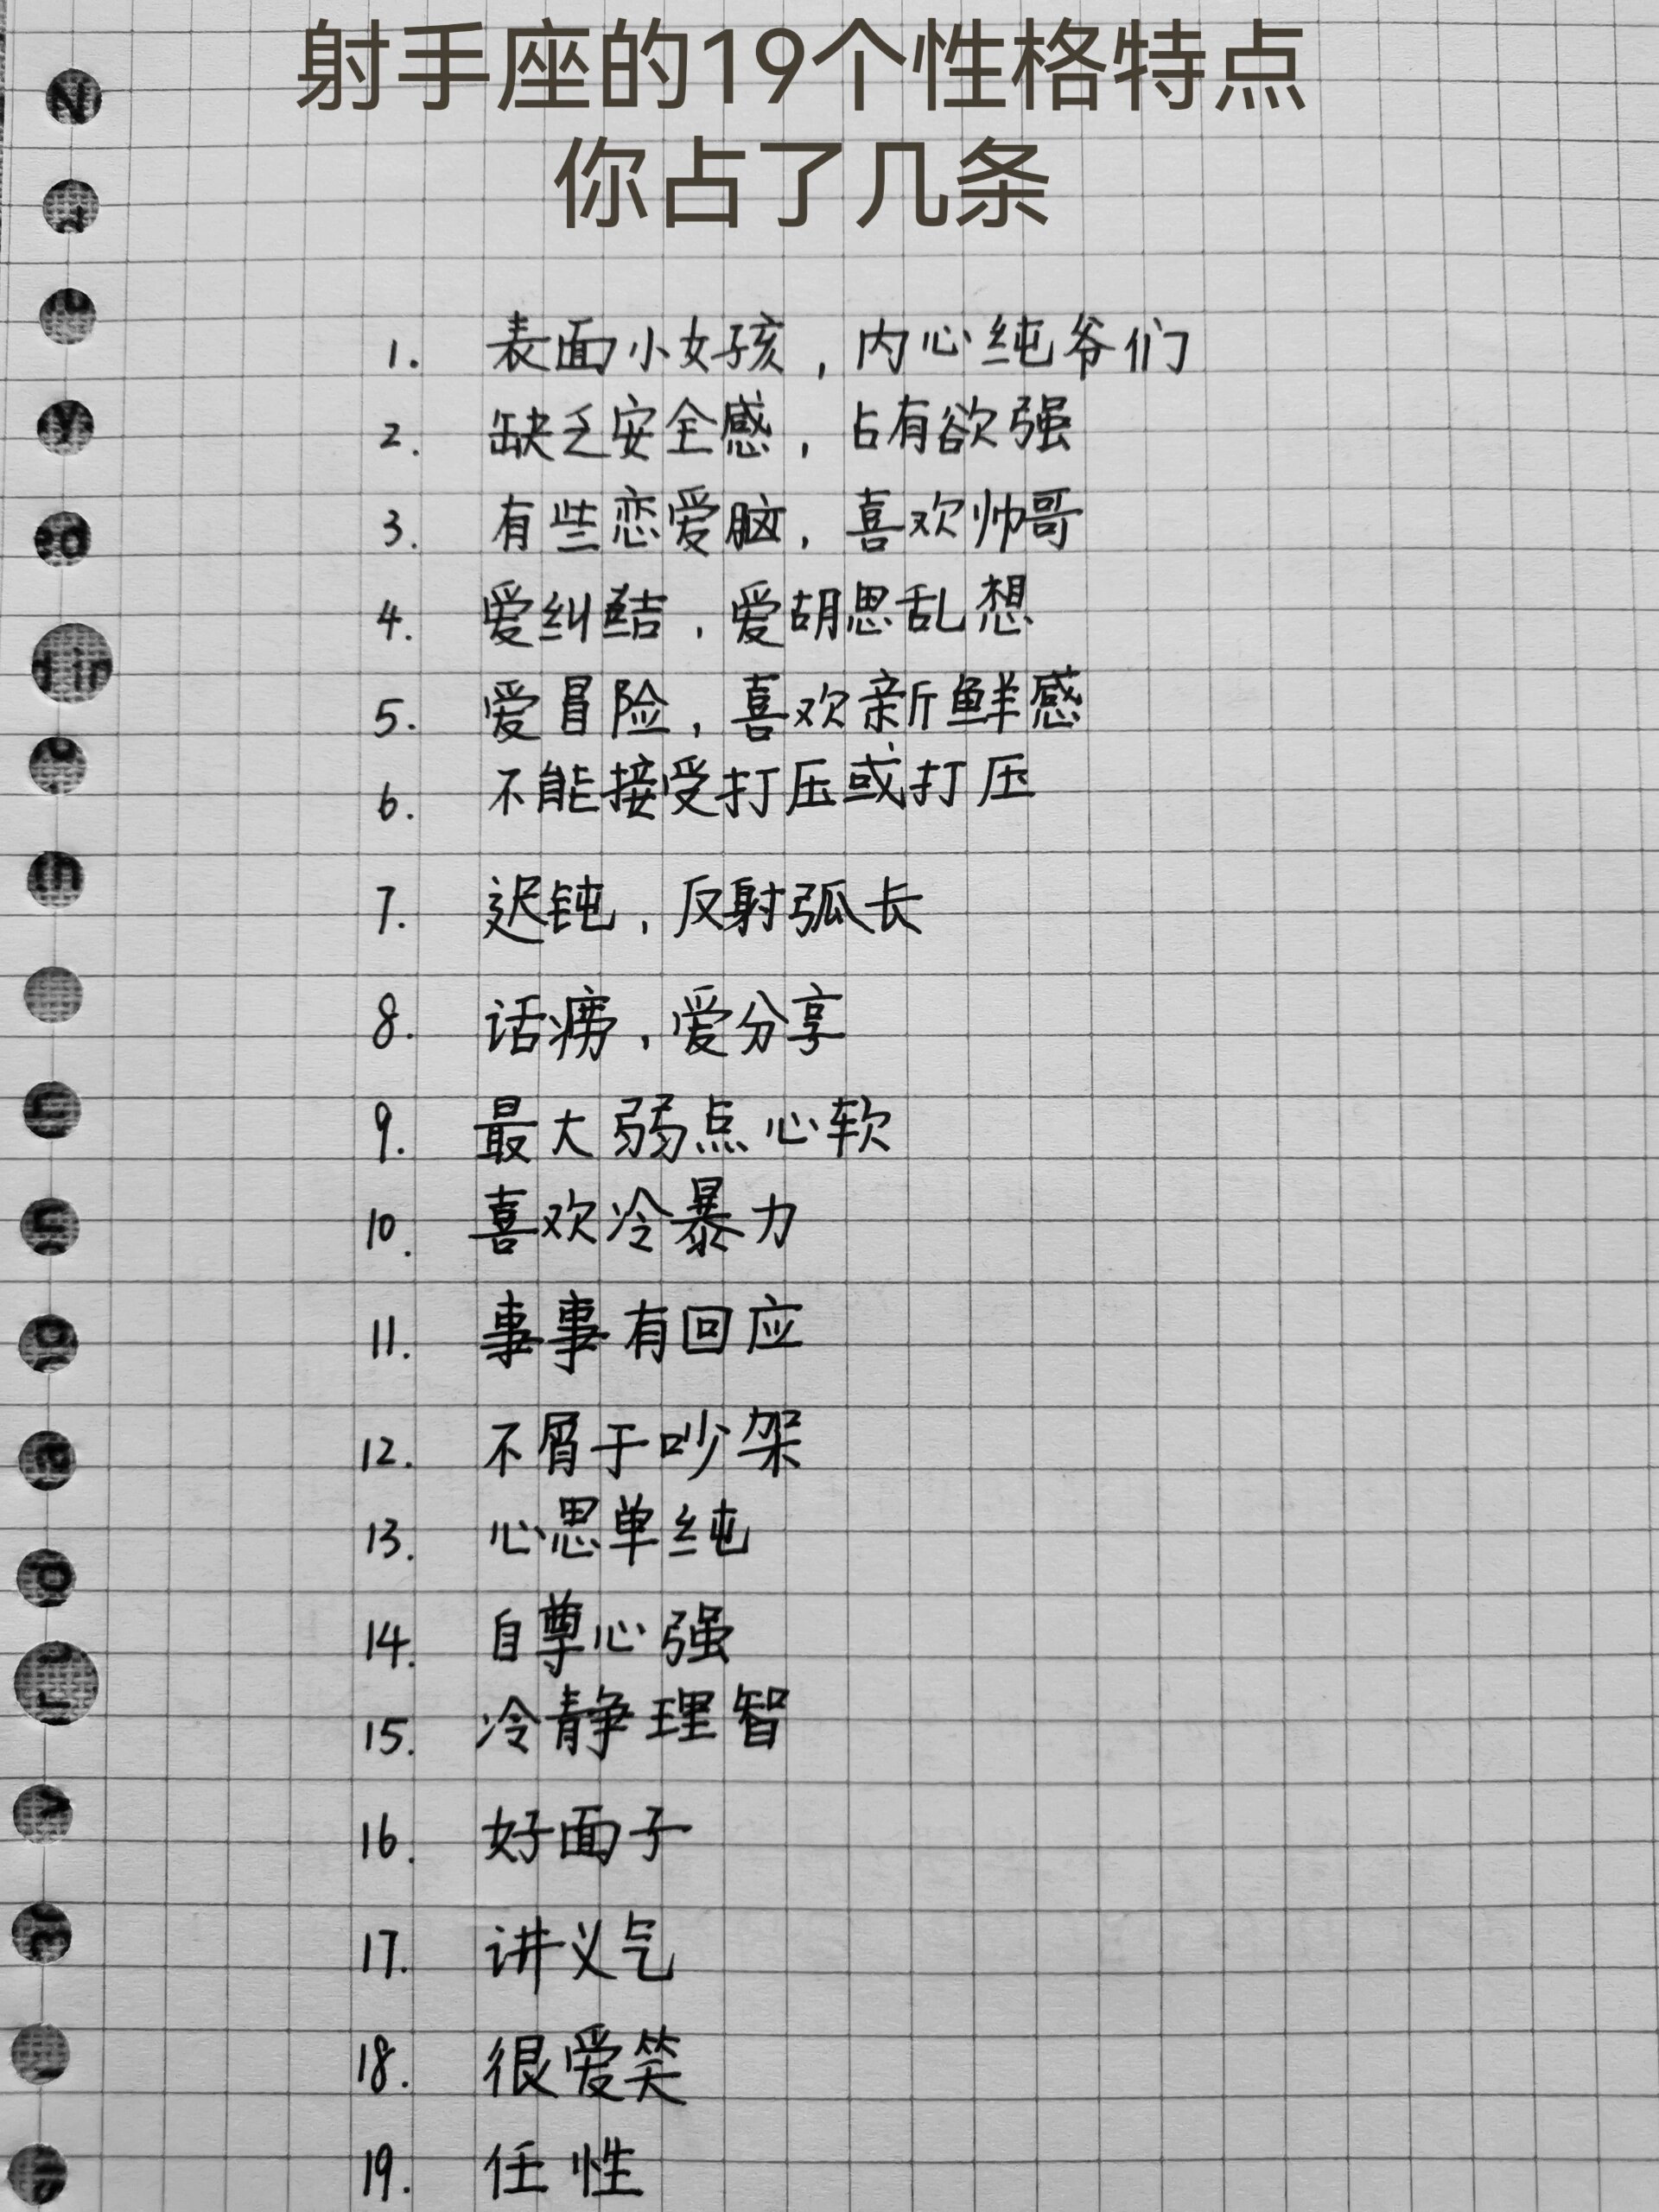 射手座的19个性格特点
你占了几条
1. 表面小女孩，内心纯爷们
2. 缺乏安全感，占有欲强
3. 有些恋爱脑，喜欢帅哥
4. 爱纠结，爱胡思乱想
5. 爱冒险，喜欢新鲜感
6. 不能接受打压或打压
7. 迟钝，反射弧长
8. 话痨，爱分享
9. 最大弱点心软
10. 喜欢冷暴力
11. 事事有回应
12. 不屑于吵架
13. 心思单纯
14. 自尊心强
15. 冷静理智
16. 好面子
17. 讲义气
18. 很爱笑
19. 任性